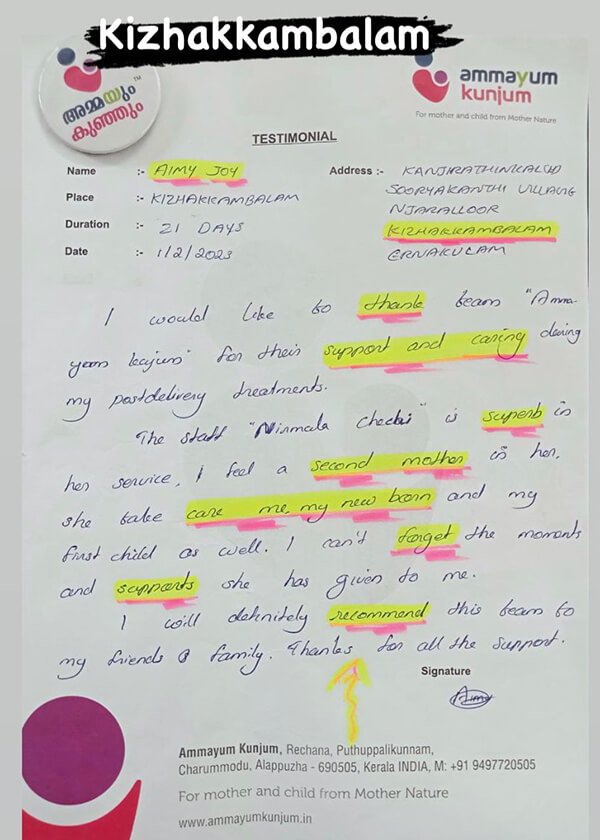 Kizhakkambalam
അമ്മയും
കുഞ്ഞും
TM
ammayum
kunjum
For mother and child from Mother Nature
TESTIMONIAL
Name :- AIMY JOY
Place :- KIZHAKKAMBALAM
Duration :- 21 DAYS
Date :- 1/2/2023
Address :-
SOORYAKANTHI
NJARALLOOR
KIZHAKKAMBALAM
ERNAKULAM
I would like to thank team "Amma-
yum kujum" for their support and caring during
my postdelivery treatments.
The staff "Nirmala Chechi" is superb in
her service. I feel a second mother in her.
she take care me, my new born and my
first child as well. I can't forget the moments
and supports she has given to me.
I will definitely recommend this team to
my friends & family. Thanks for all the support.
Signature
Aimy
Ammayum Kunjum, Rechana, Puthuppalikunnam,
Charummodu, Alappuzha - 690505, Kerala INDIA, M: +91 9497720505
For mother and child from Mother Nature
www.ammayumkunjum.in